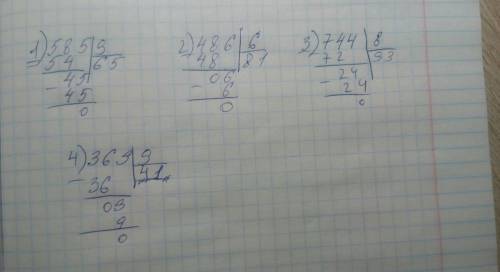 1) 585 | 9
54 | 65
- 45
45
0
2) 486 | 6
48 | 81
06
- 6
0
3) 744 | 8
72 | 93
- 24
24
0
4) 369 | 9
- 36 | 41
09
9
0